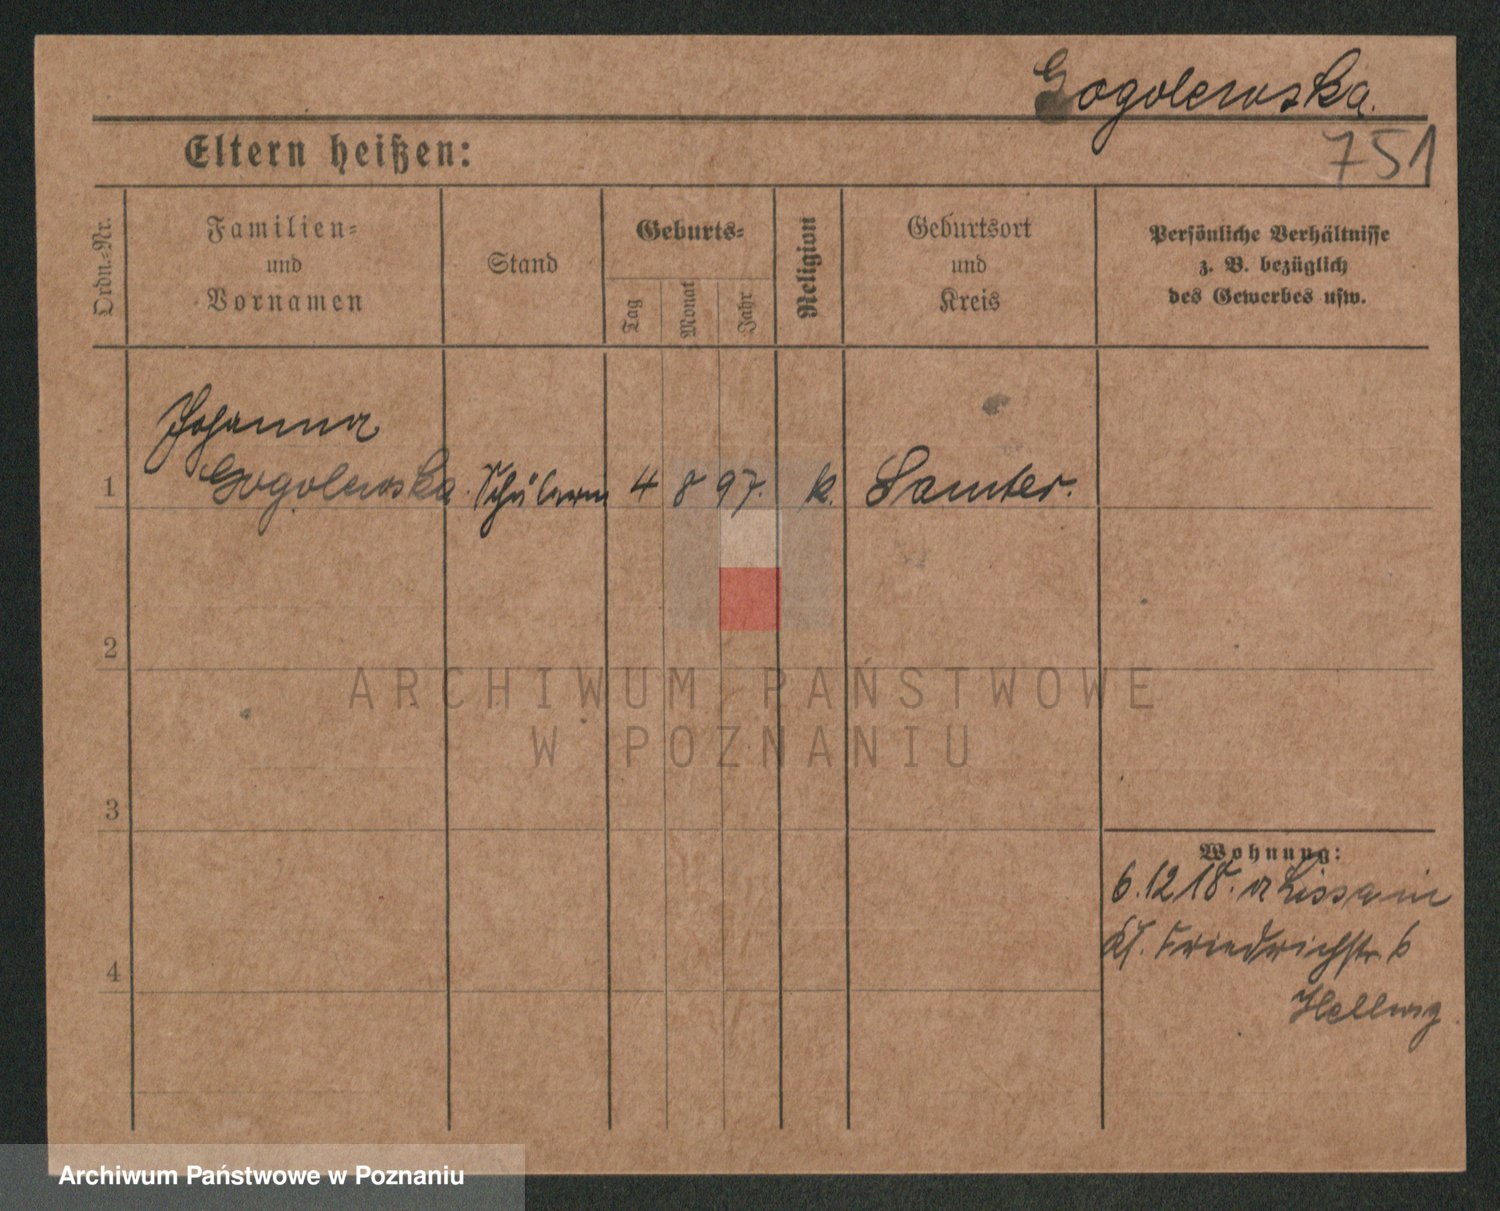 Gogolewska.
751
Eltern heißen:
Ordn.-Nr.
Familien-
und
Vornamen
Stand
Geburts-
Tag
Monat
Jahr
Religion
Geburtsort
und
Kreis
Persönliche Verhältnisse
z. B. bezüglich
des Gewerbes usw.
Johanna
1 Gogolewska. Schülerin 4 8 97. k. Samter.
2
ARCHIWUM PAŃSTWOWE
W POZNANIU
3
Wohnung:
6.12 18. Lissa in
Friedrichstr. 6
4
Hellwig
Archiwum Państwowe w Poznaniu